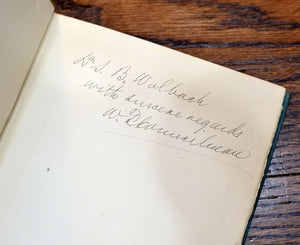 Dr S. B. Wolbach
with sincere regards
W. T. Councilman